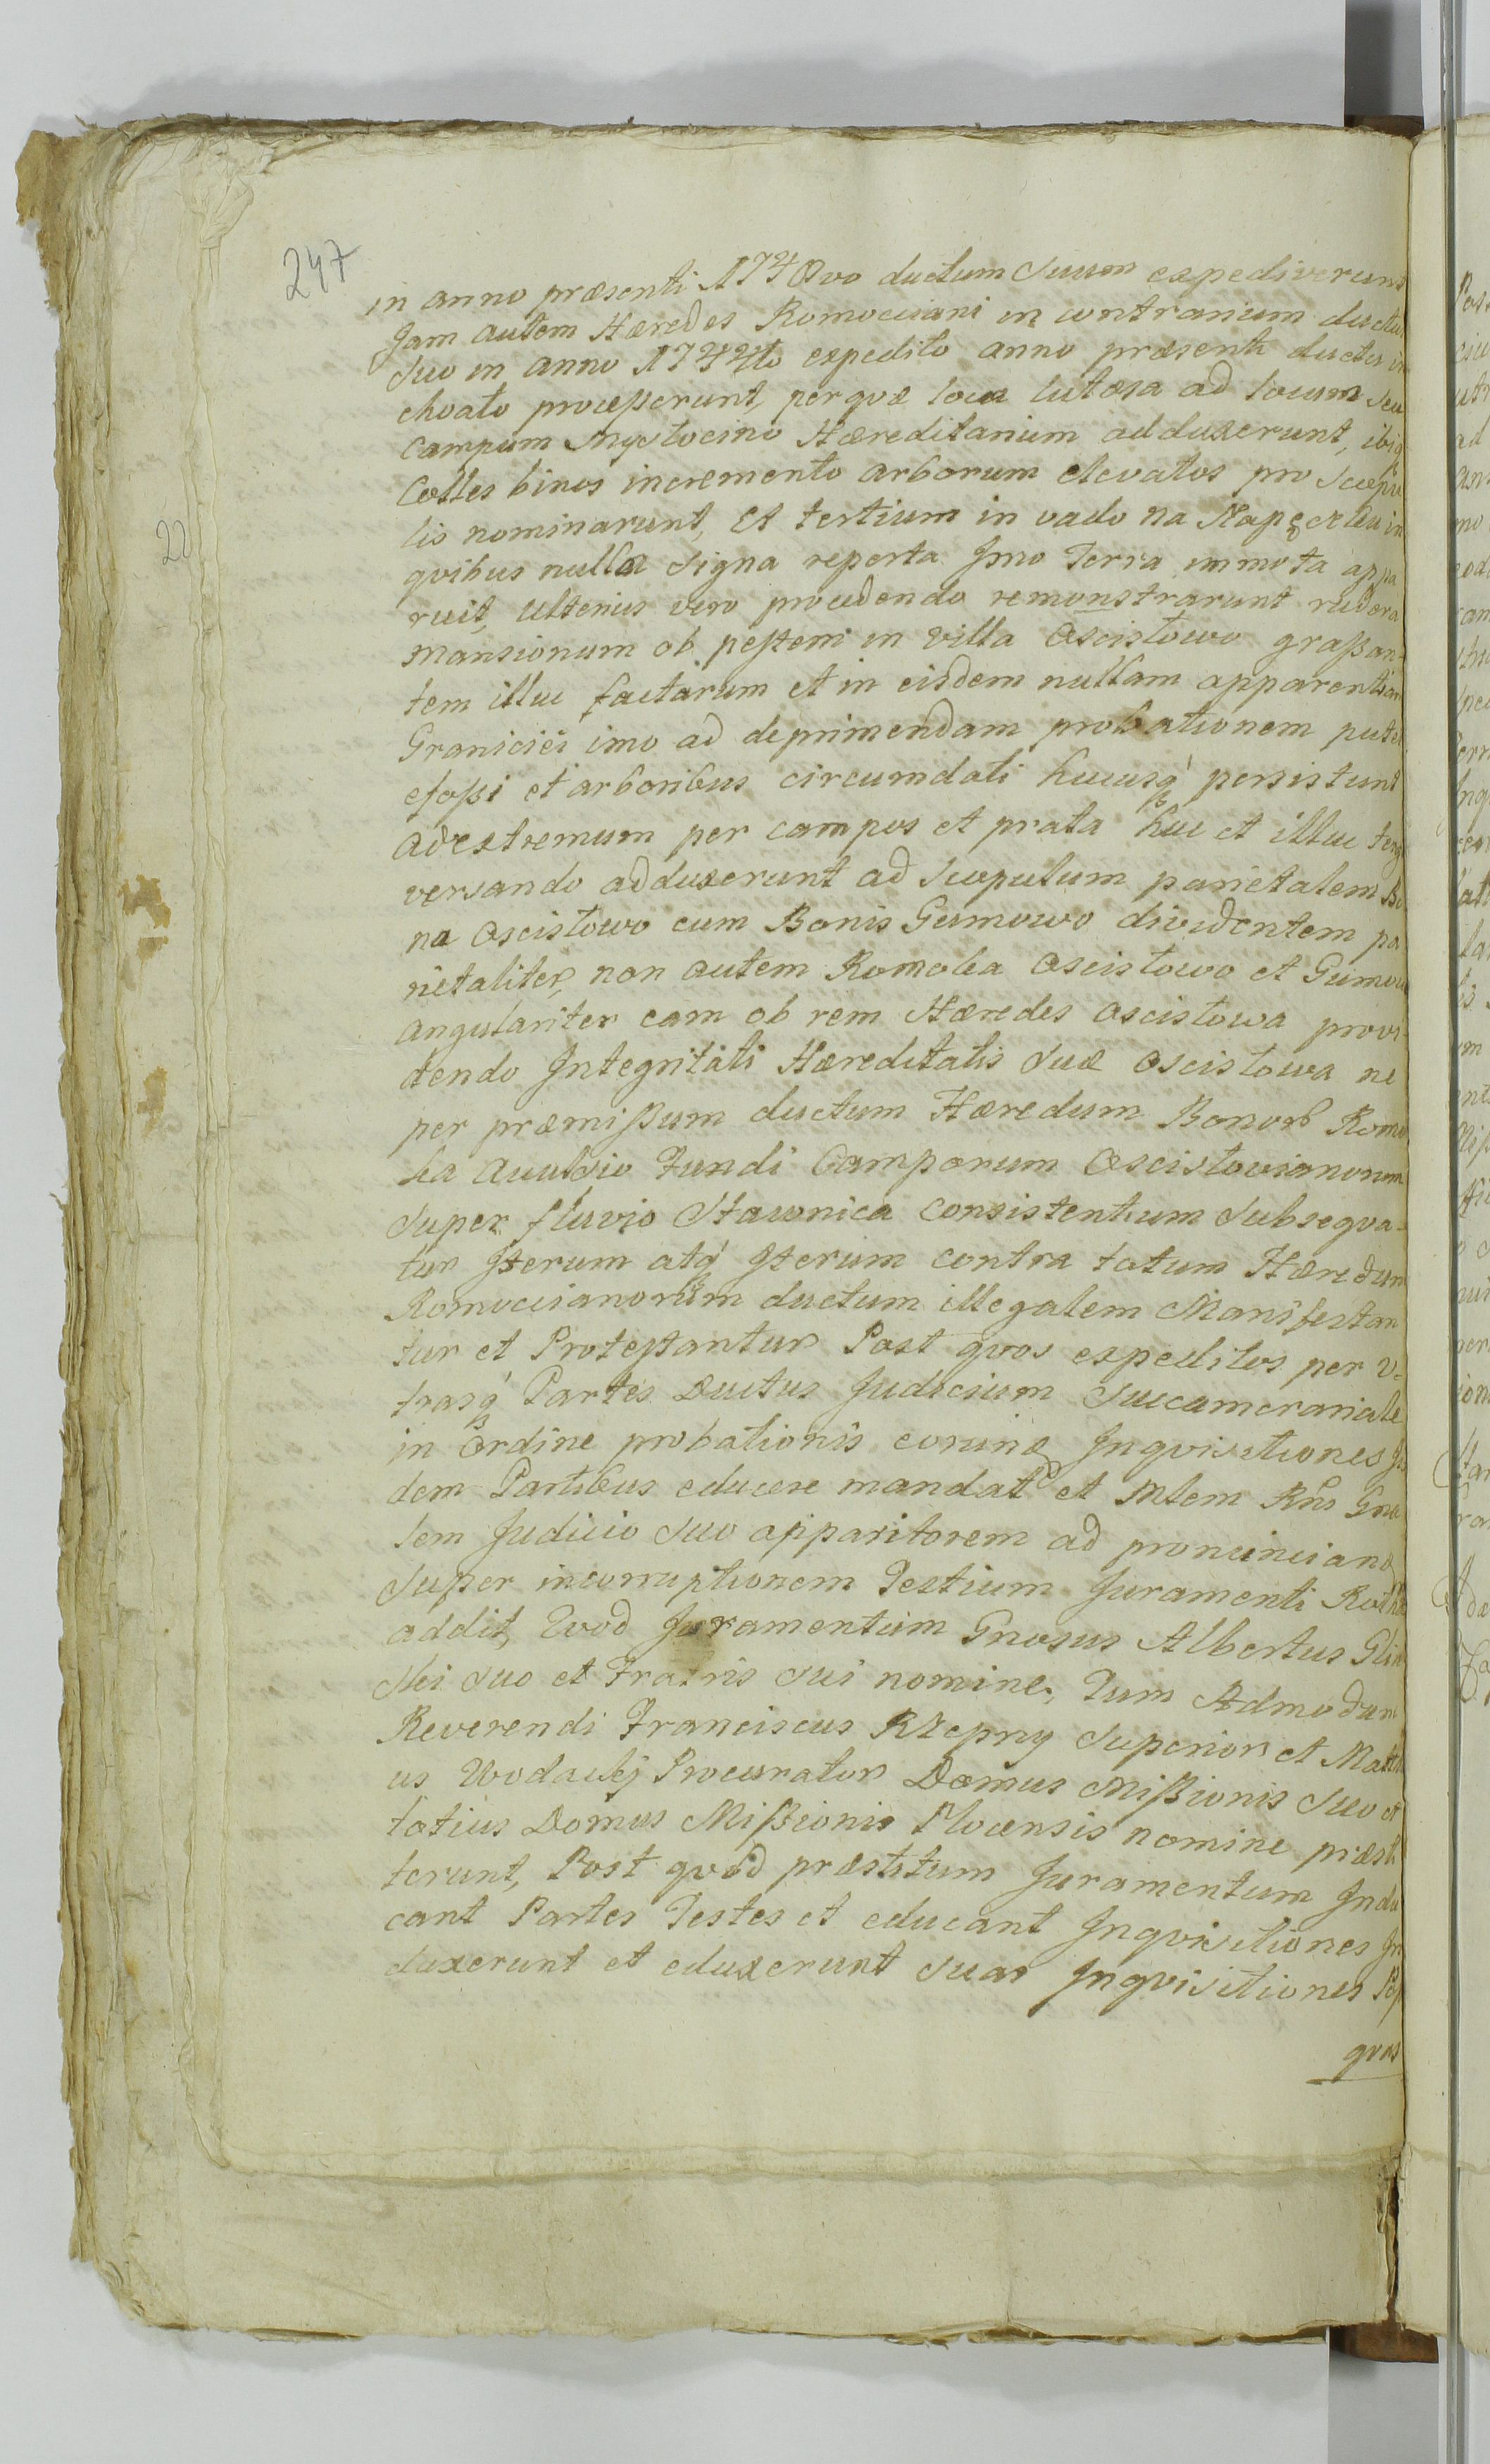 247
in anno præsenti 1748vo ductum Suum expediverunt
Jam autem Hæredes Romocciani in contrarium ductui
Suo in anno 1744to expedito anno præsenti ductu in
choato processerunt, per qvæ loca lutosa ad locum seu
campum Mystocino Hæreditarium adduxerunt, ibiq
Colles binos incremento arborum elevatos pro Scopu
lis nominarunt, Et tertium in vado na in
22
qvibus nulla Signa reperta Imo Terra immota appa
ruit, Ulterius vero procedendo remonstrarunt rudera
Mansionum ob pestem in Villa Oscistowo graßan-
tem illuc factarum et in eisdem nullam apparentiam
Graniciei imo ad deprimendam probationem putei
efoßi et arboribus circumdati hucusq persistunt
Ad extremum per campos et prata huc et illuc terg
versando adduxerunt ad Scopulum parietalem Bo
na Oscistowo cum Bonis Gumowo dividentem pa
rietaliter, non autem Romoka Oscistowo et Gumowo
angulariter eam ob rem Hæredes Oscistowa provi-
dendo Integritati Hæreditatis Suæ Oscistowa ne
per præmißum ductum Hæredum Bonorb Romo
ka Avulsio Fundi Camporum Oscistovianorum
Super fluvio Stawnica Consistentium Subseqva-
tur Iterum atq Iterum contra totum Hæredum
Romoccianorum ductum illegalem Manifestan
tur et Protestantur Post qvos expeditos per V-
trasq Partes Ductus Judicium Succamerariale
in Ordine probationis eorund Inqvisitiones
dem Partibus educere mandat et Mtem Rni Gna
lem Judicio suo apparitorem ad pronunciand
Super incorruptionem Testium Juramenti Roth
addit, Qvod Juramentum Gnosus Albertus Glin
ski suo et Fratris sui nomine, Tum Admodum
Reverendi Franciscus Rzepny Superior et Math
us Wodacky Procurator Domus Mißionis Suo et
totius Domus Mißionis Plocensis nomine præsti
terunt, Post qvod præstitum Juramentum Indu
cant Partes Testes et educant Inqvisitiones In
duxerunt et eduxerunt suas Inqvisitiones Post
qvas